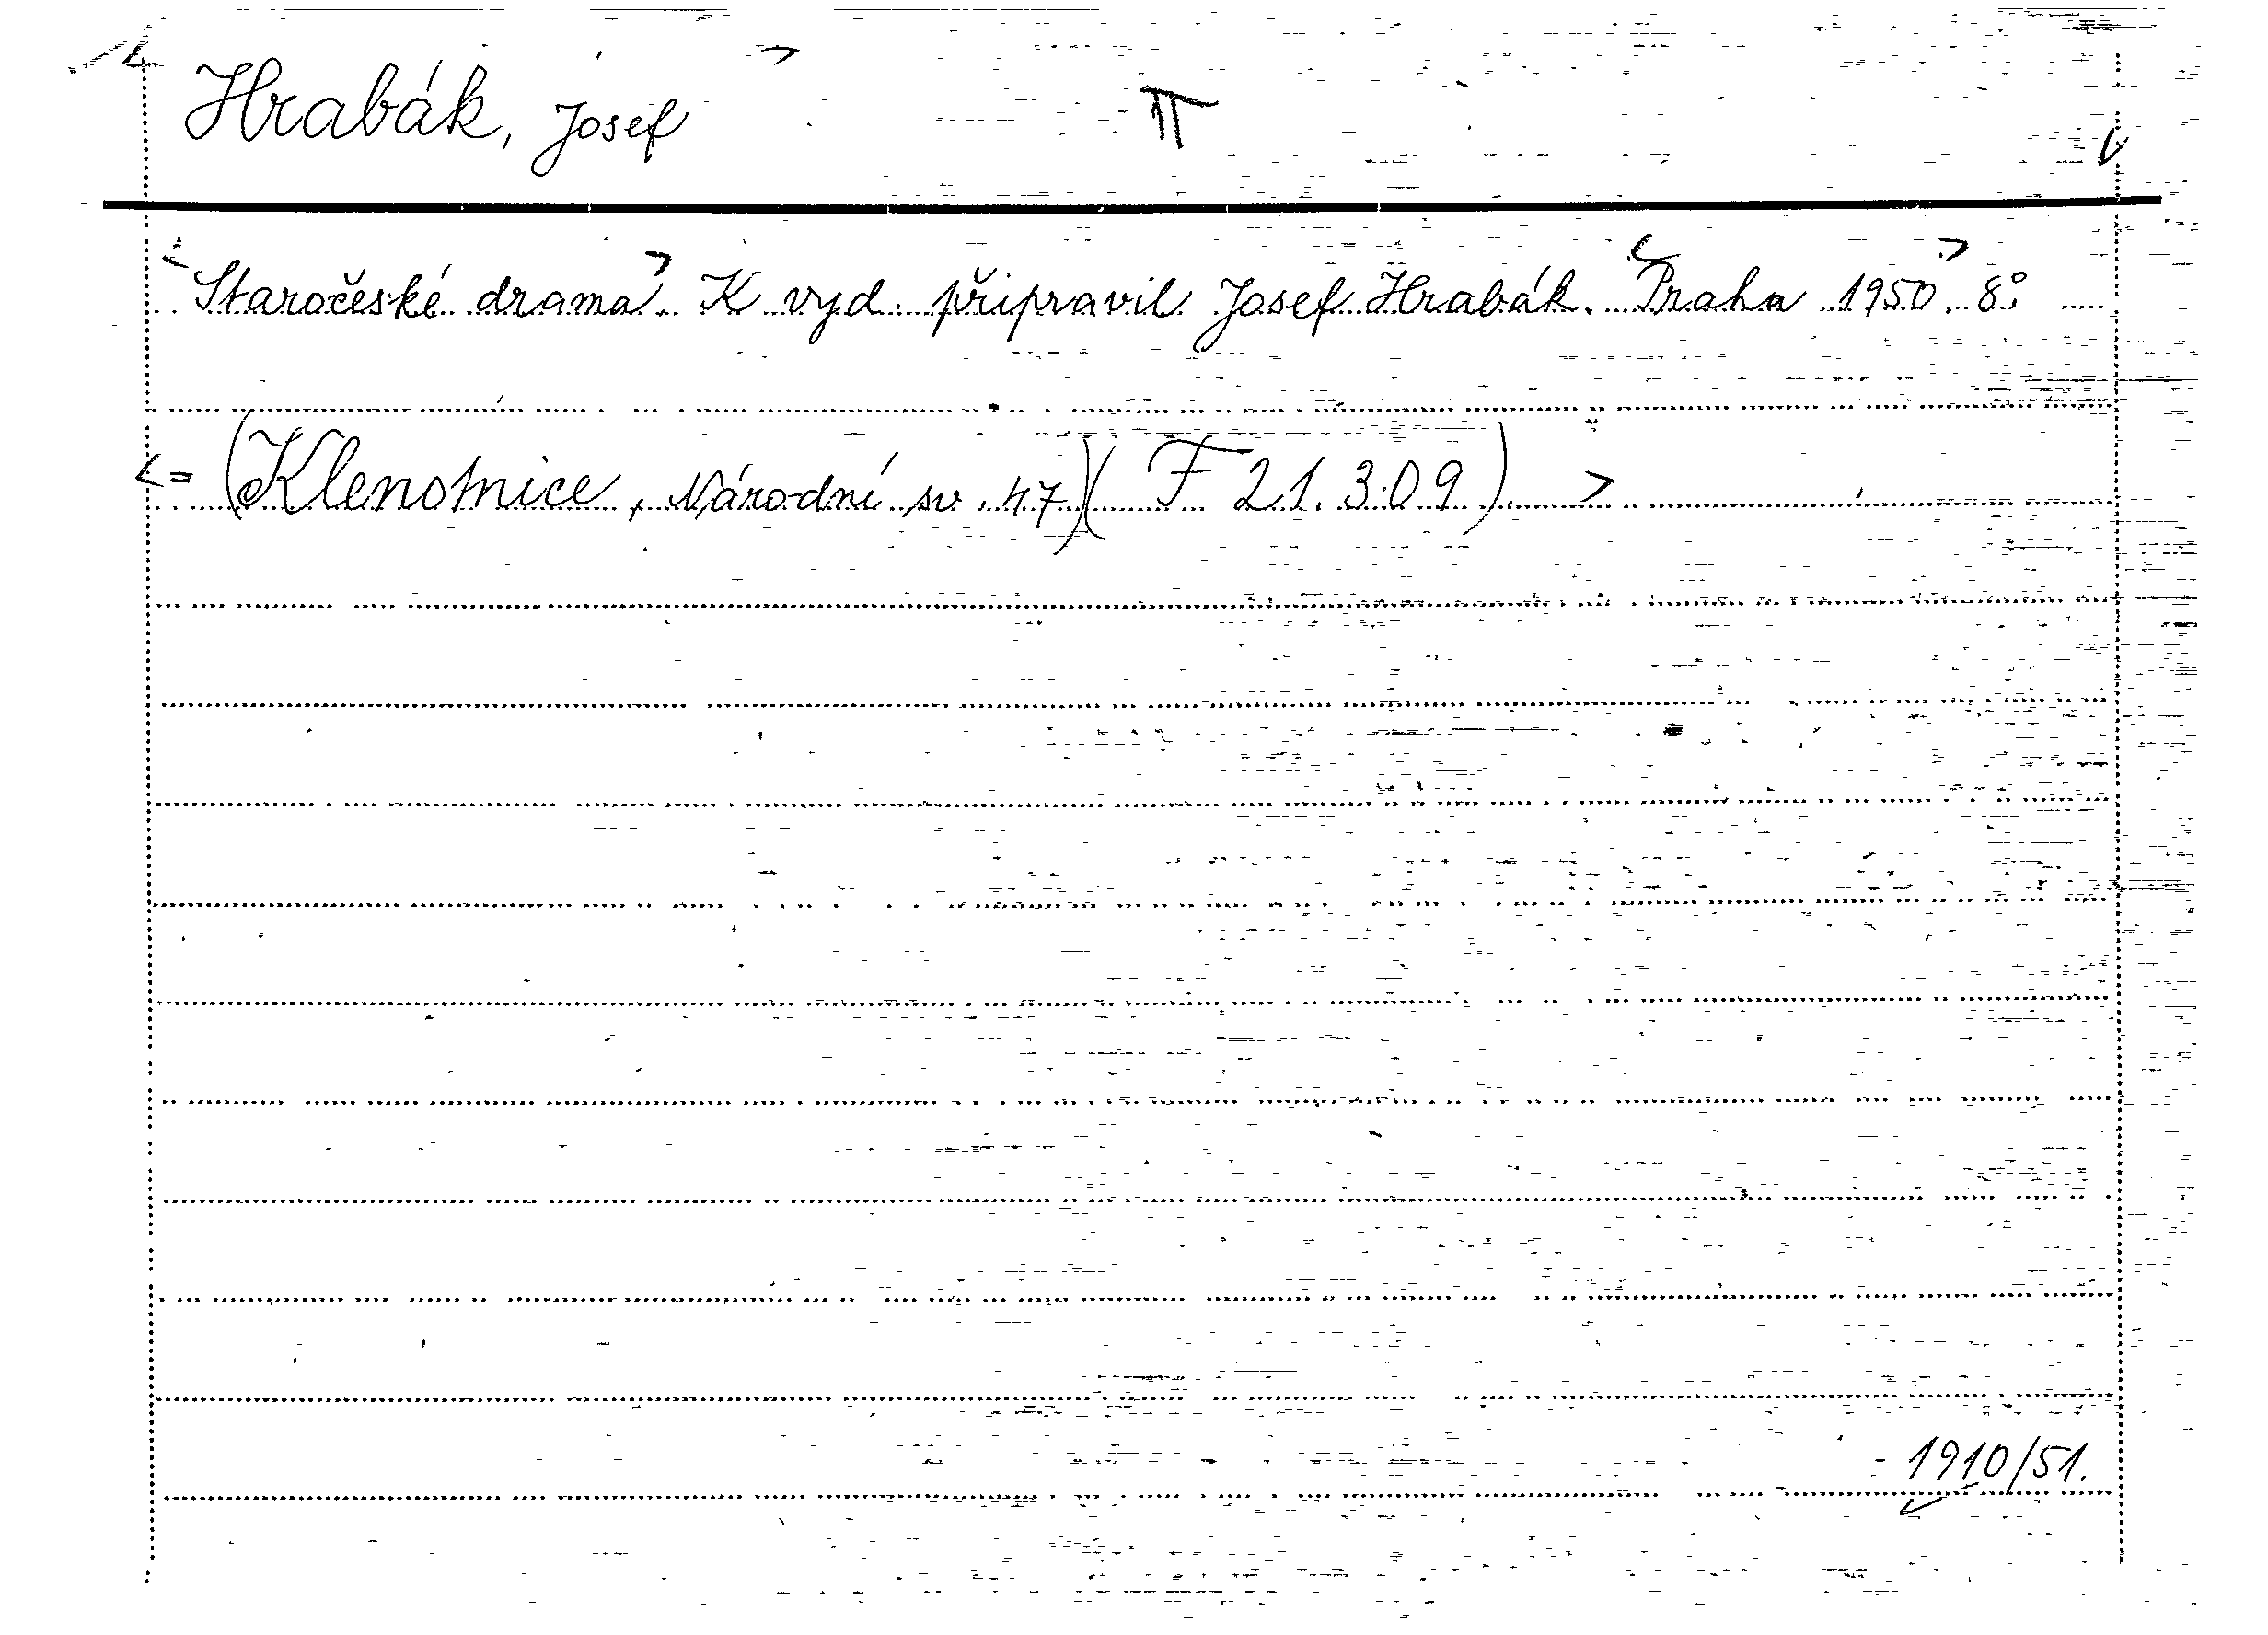 Hrabák, Josef π
Staročeské drama. K vyd. připravil Josef Hrabák. Praha 1950. 8°.
(Klenotnice, Národní sv. 47)(F 21.309)
1910/51.